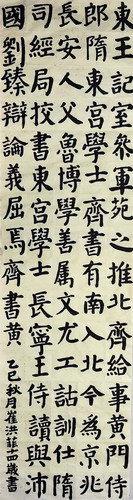 東王記室參軍苑之推北齊給事黃門侍
郎隋東宮學士齊書有南入北今為京兆
長安人父魯博學善属文尤工詁訓仕隋
司經局挍書東宮學士長寧王侍讀與沛
國劉臻辯論義屈焉齊書黃
乙巳秋月崔洪菲十四歲書